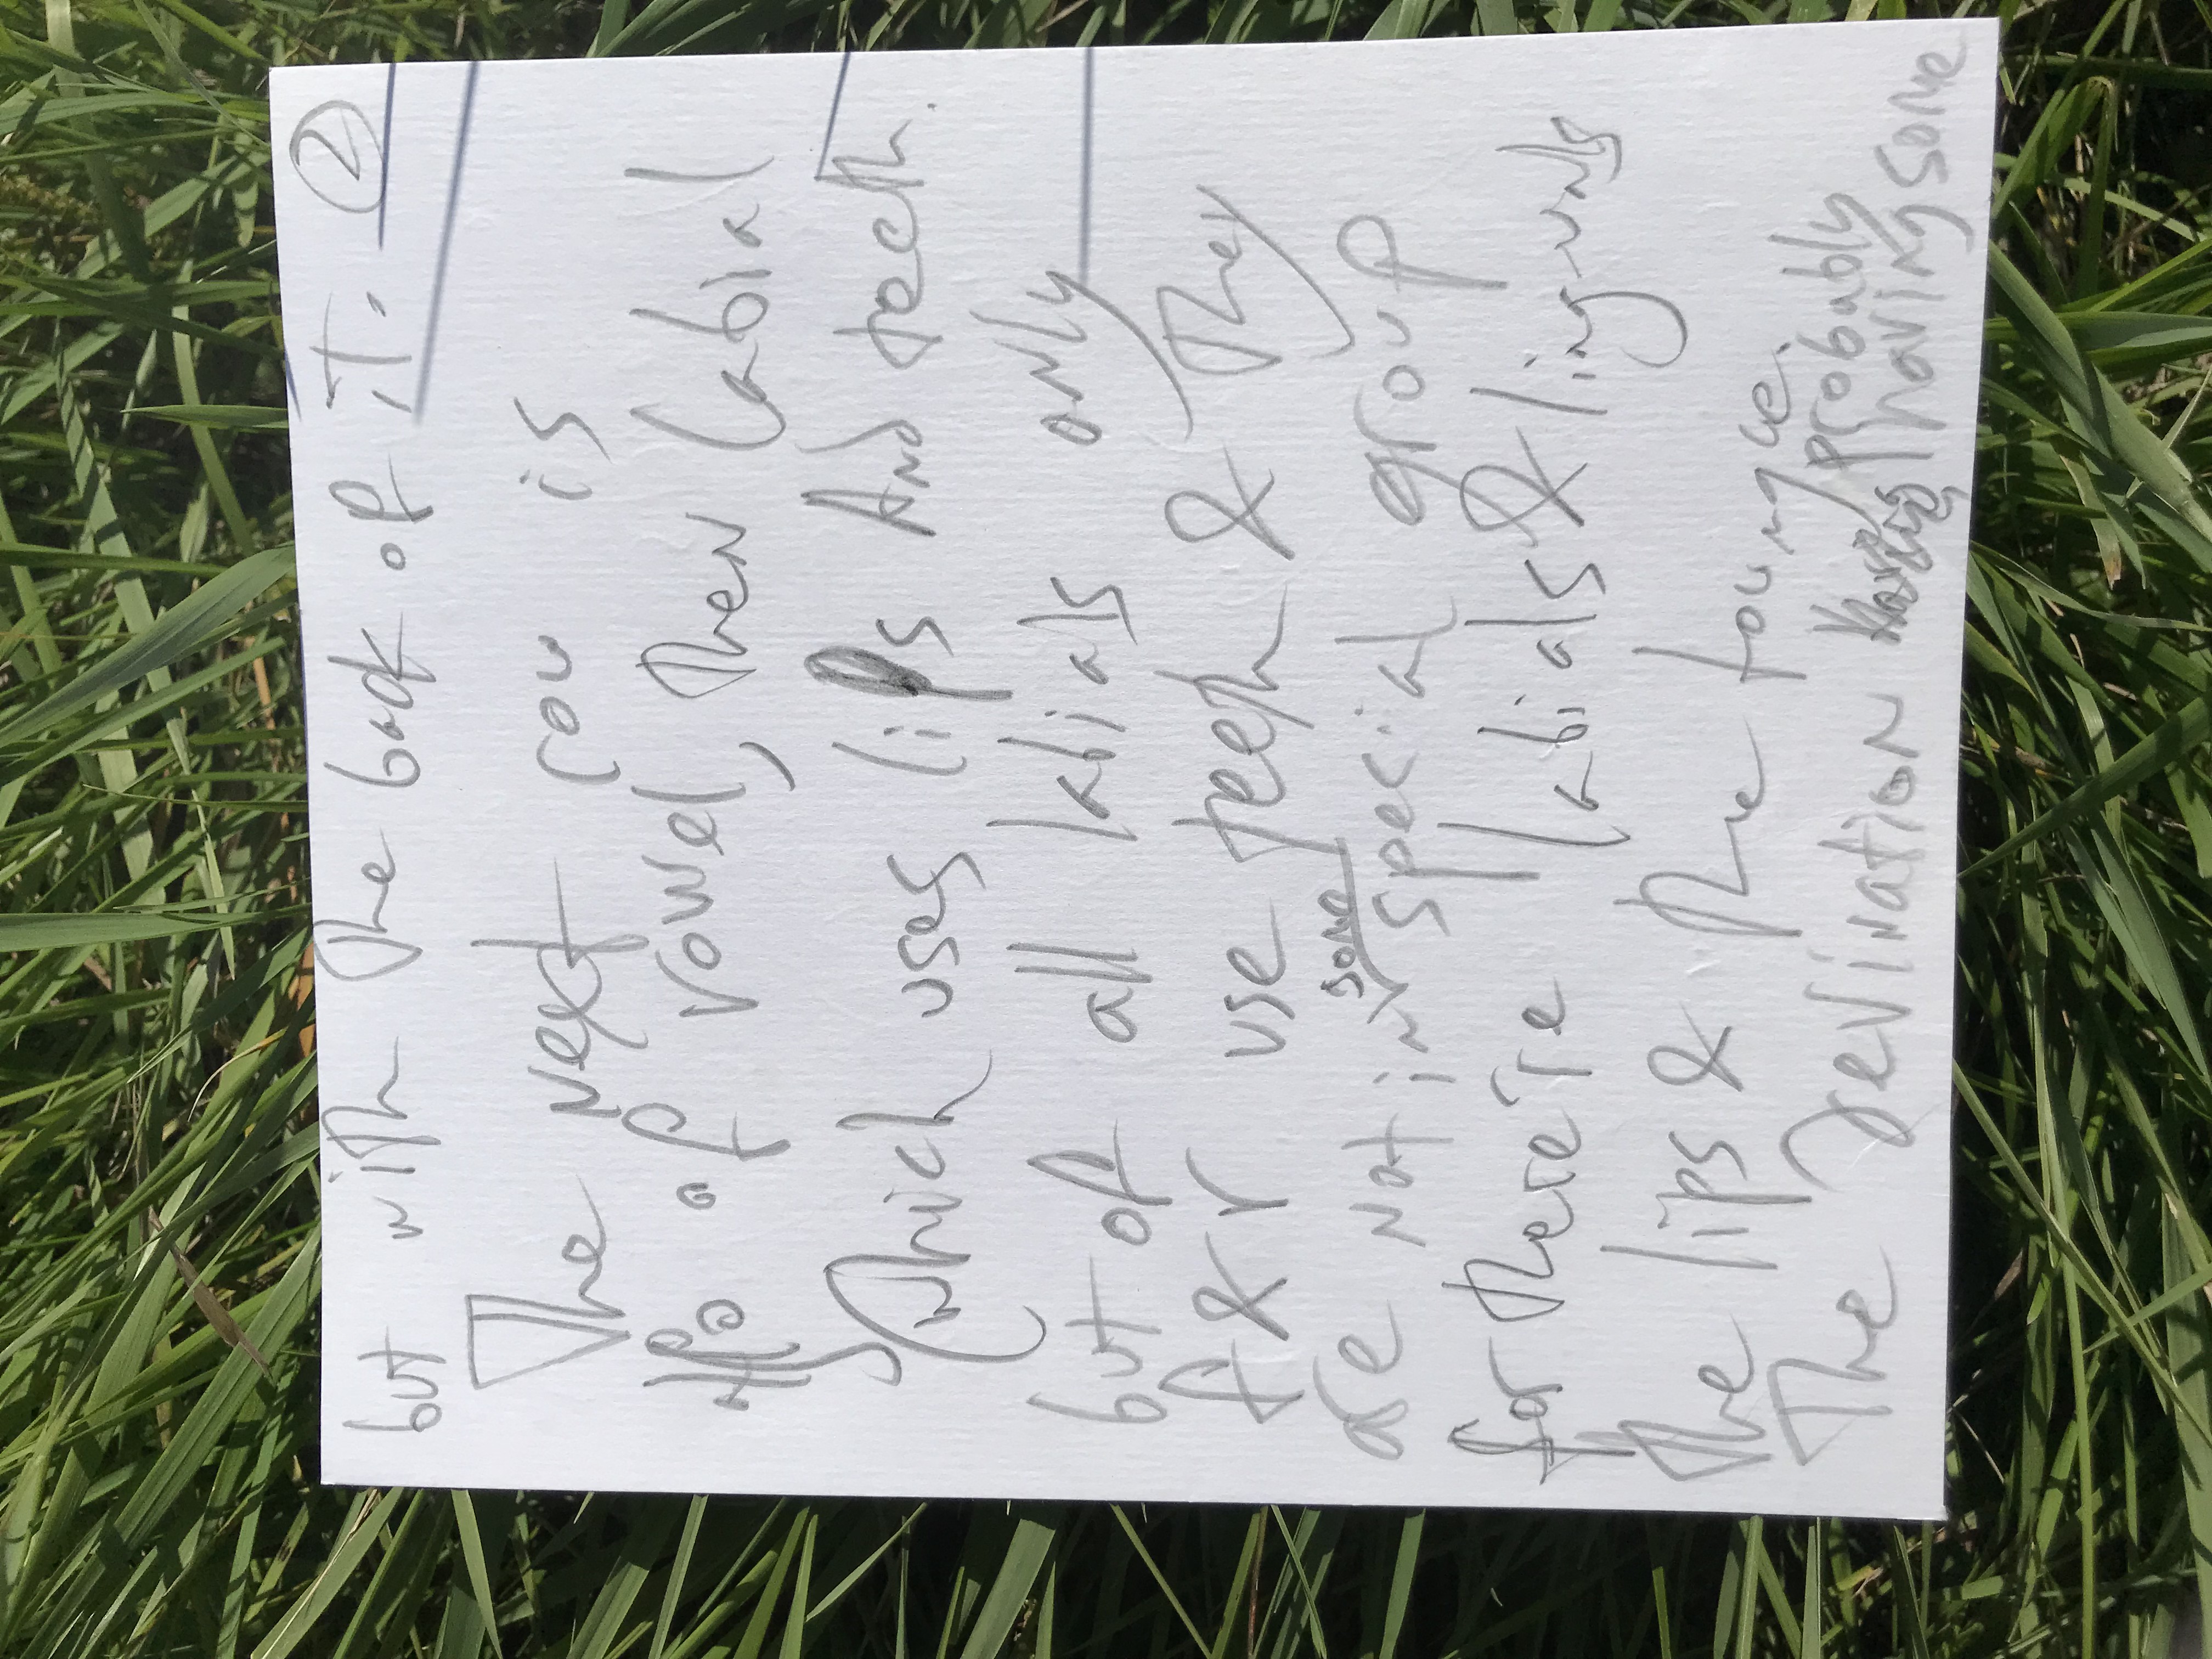 but with the back of it. ②
The next row is
of vowel, then labial
(which uses lips And teeth.
but of all labials only
f & v use teeth & they
are not in some special group
for there're labials & linguals
the lips & the toungue.
The devination probably
having some